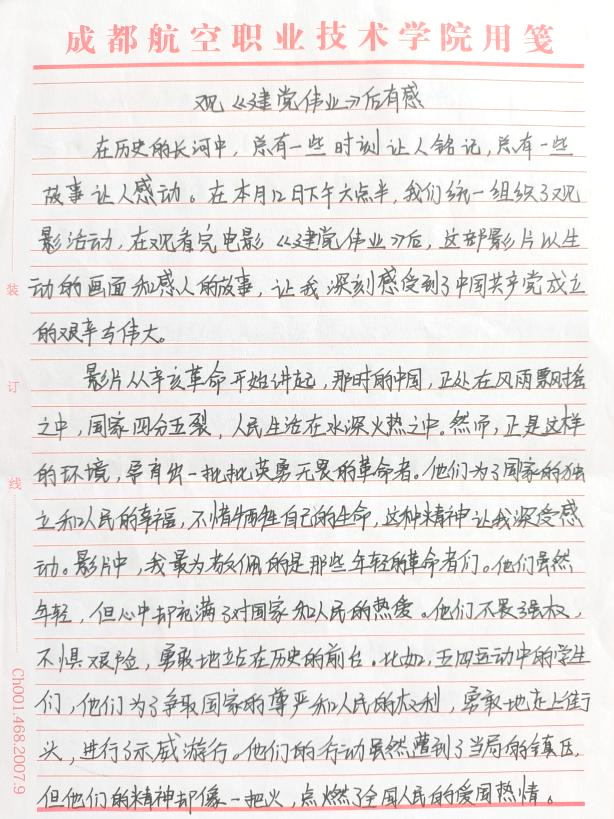 成都航空职业技术学院用笺
观《建党伟业》后有感
在历史的长河中，总有一些时刻让人铭记，总有一些
故事让人感动。在本月12日下午六点半，我们统一组织了观
影活动，在观看完电影《建党伟业》后，这部影片以生
动的画面和感人的故事，让我深刻感受到了中国共产党成立
的艰辛与伟大。
影片从辛亥革命开始讲起，那时的中国，正处在风雨飘摇
之中，国家四分五裂，人民生活在水深火热之中。然而，正是这样
的环境，孕育出一批批英勇无畏的革命者。他们为了国家的独
立和人民的幸福，不惜牺牲自己的生命，这种精神让我深受感
动。影片中，我最为敬佩的是那些年轻的革命者们。他们虽然
年轻，但心中却充满了对国家和人民的热爱。他们不畏强权，
不惧艰险，勇敢地站在历史的前台。比如，五四运动中的学生
们，他们为了争取国家的尊严和人民的权利，勇敢地走上街
头，进行了示威游行。他们的行动虽然遭到了当局的镇压，
但他们的精神却像一把火，点燃了全国人民的爱国热情。
装
订
线
Ch001.468.2007.9